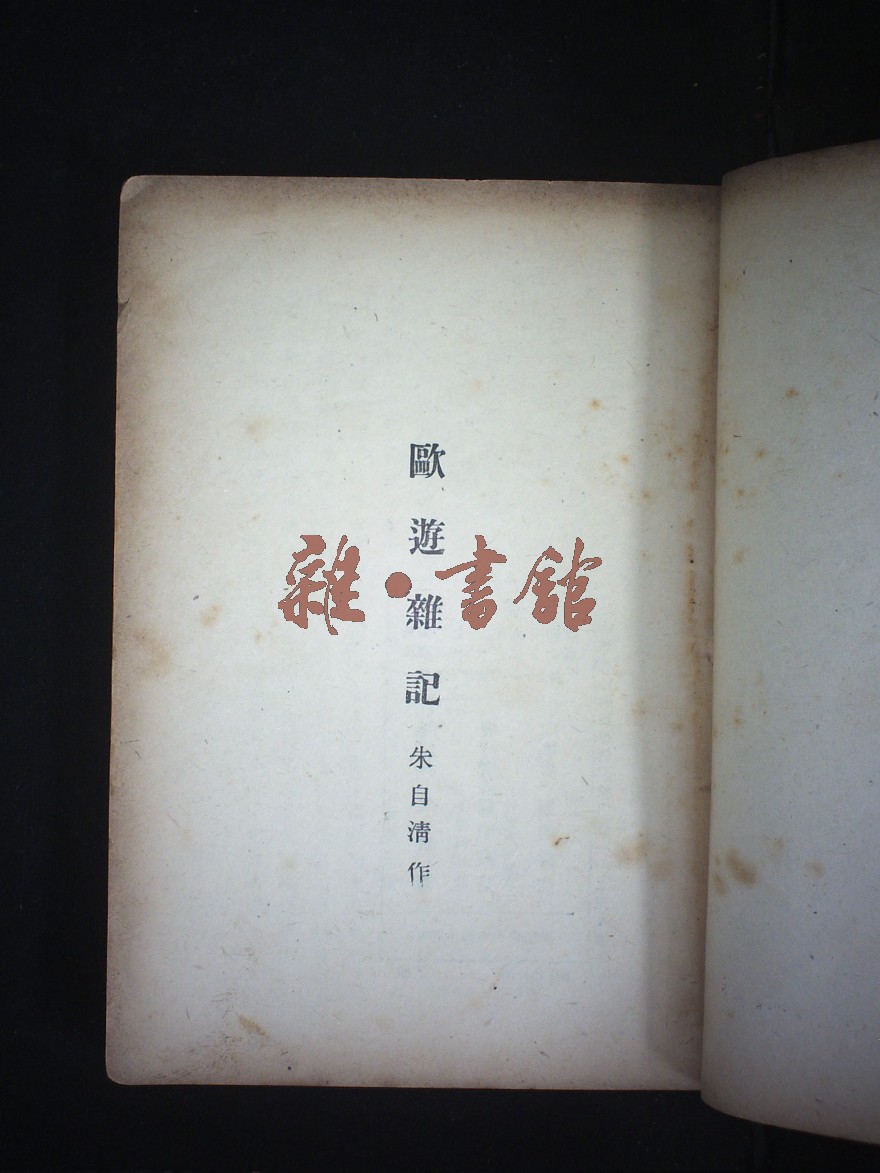 歐遊雜記
朱自清作
雜·書館